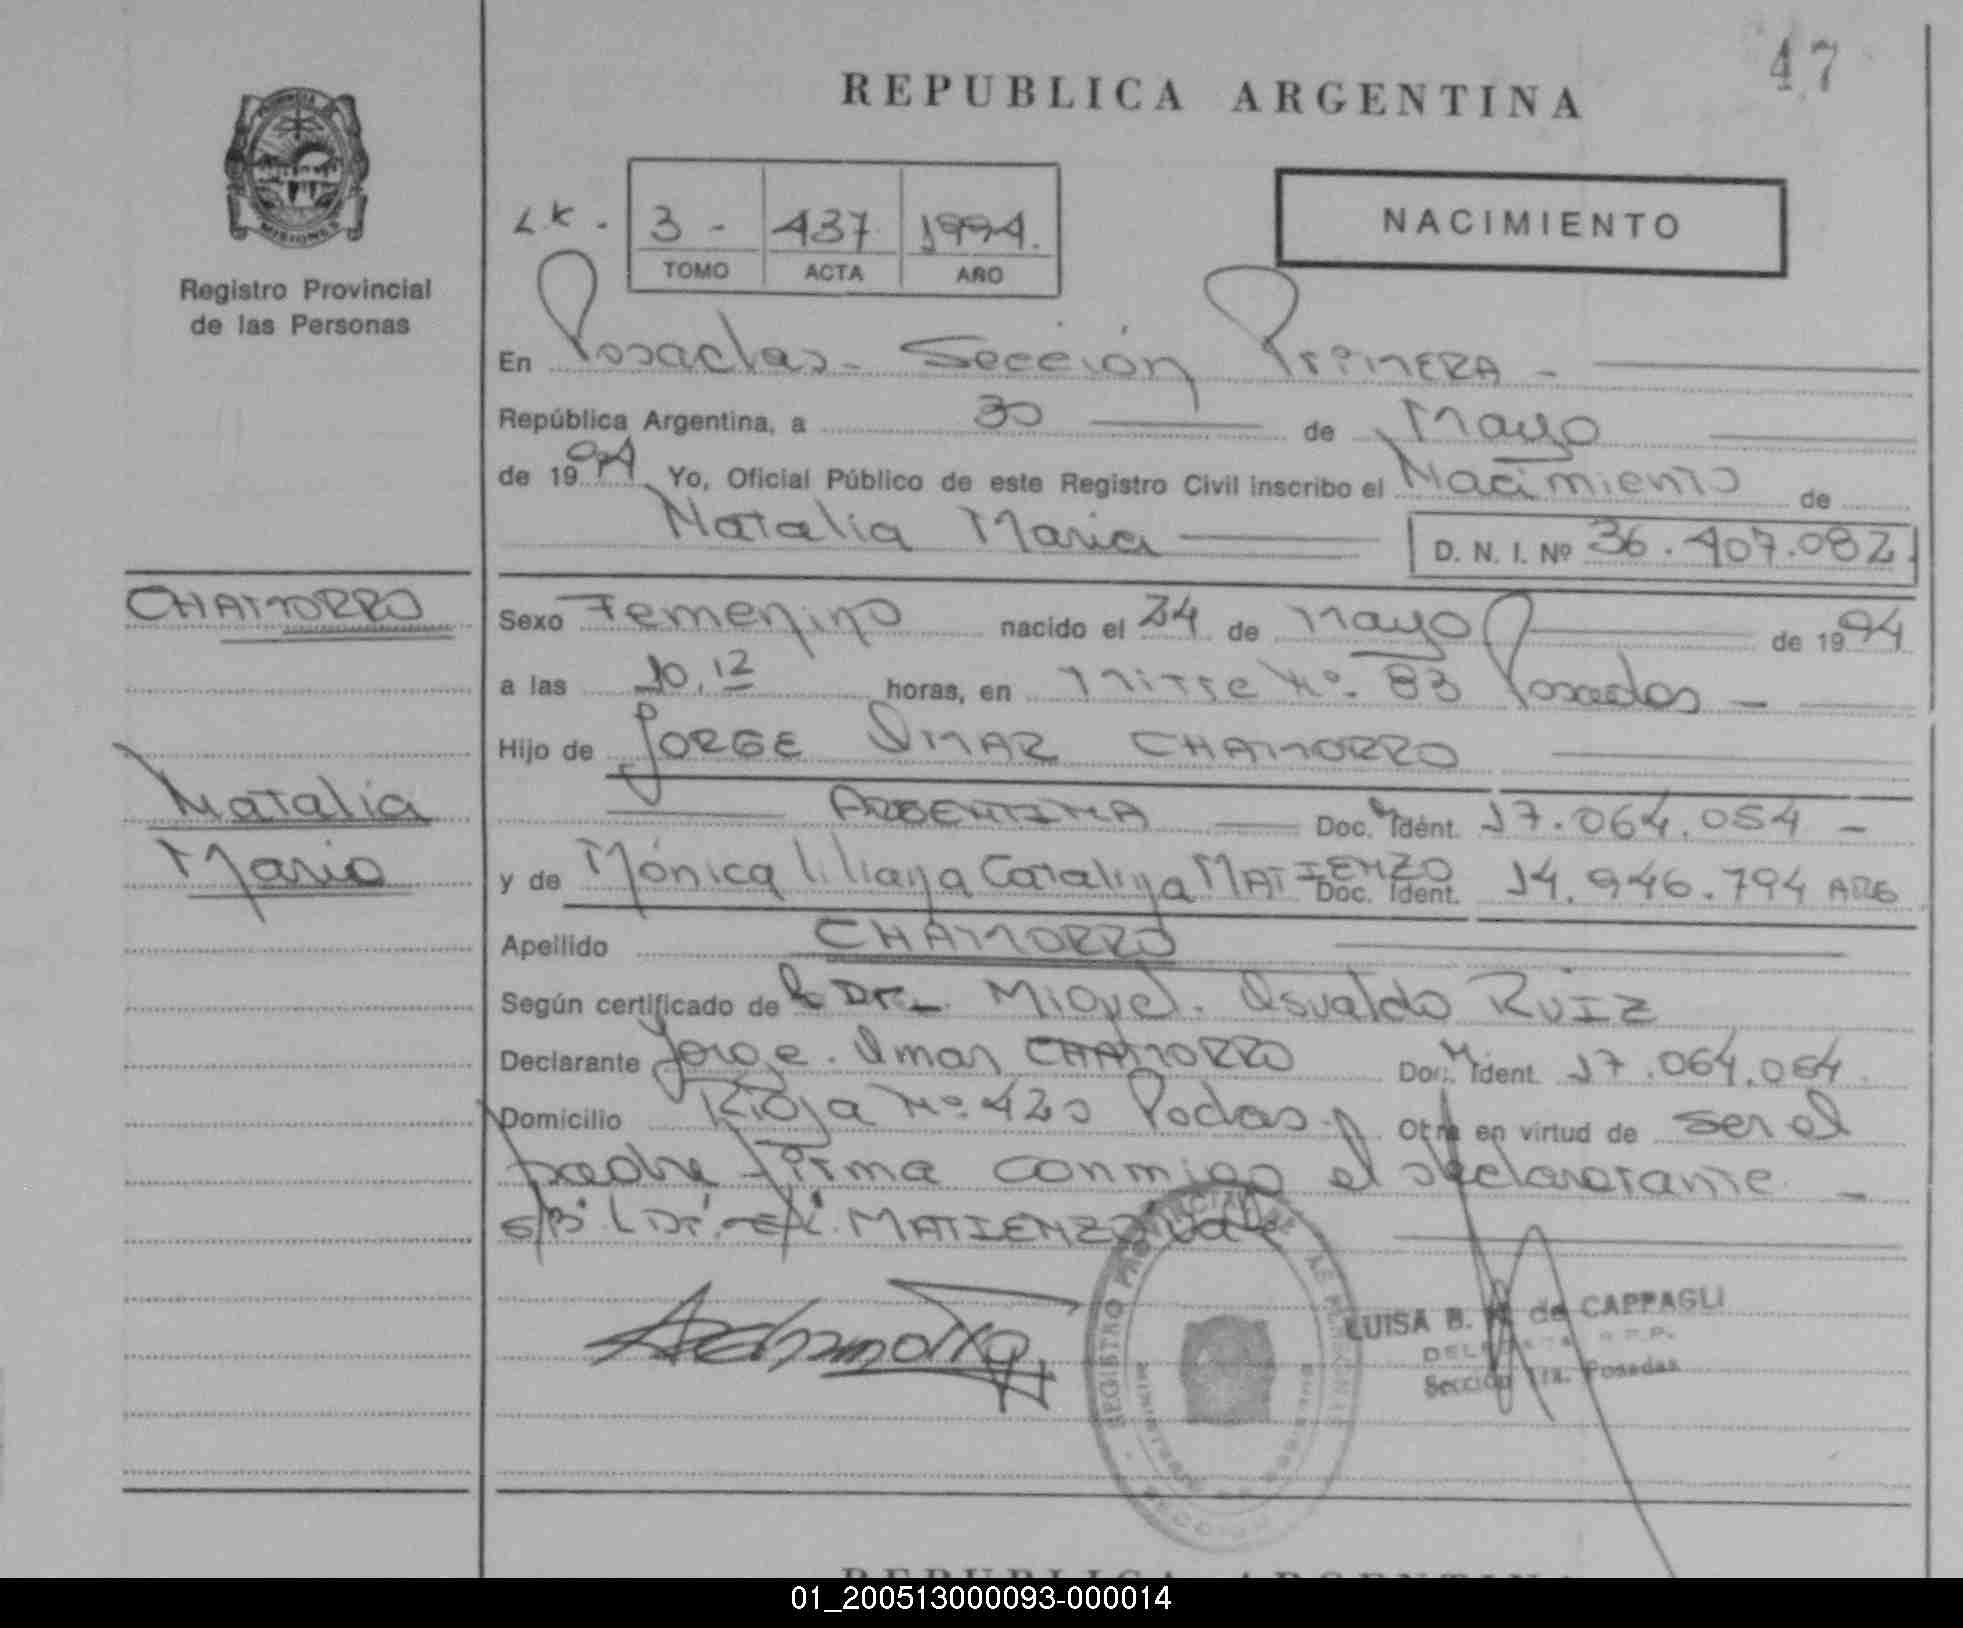 47
REPUBLICA ARGENTINA
MISIONES
Registro Provincial
de las Personas
L.K. 3 - 437 1994.
TOMO ACTA AÑO
NACIMIENTO
En Posadas - Sección Primera -
República Argentina, a 30 de Mayo
de 1994 Yo, Oficial Público de este Registro Civil inscribo el Nacimiento de
Natalia Maria D. N. I. Nº 36.407.082
CHAMORRO
Sexo Femenino nacido el 24 de Mayo de 1994
a las 10,12 horas, en Mitre Nº 83 Posadas -
Hijo de Jorge Omar CHAMORRO
Natalia
ARGENTINA Doc. Ident. 17.064.054 -
Maria
y de Mónica Liliana Catalina MATIENZO Doc. Ident. 14.946.794 ARG
Apellido CHAMORRO
Según certificado de Dr. Miguel Osvaldo RUIZ
Declarante Jorge Omar CHAMORRO Doc. Ident. 17.064.054
Domicilio Rioja Nº 420 Podas. Otra en virtud de ser el
padre firma conmigo el declarante -
MATIENZO Vale
LUISA B. de CAPPAGLI
Sección 1ra. Posadas
REGISTRO PROVINCIAL DE LAS PERSONAS
REPUBLICA ARGENTINA
01_200513000093-000014